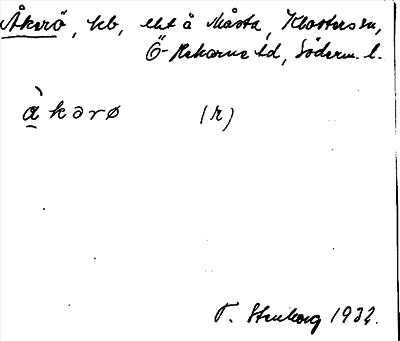 Åkerö, hb, lht å Måsta, Klosters sn,
Ö-Rekarne hd, Söderm. l.
àkərø (r)
T. Stenborg 1932.